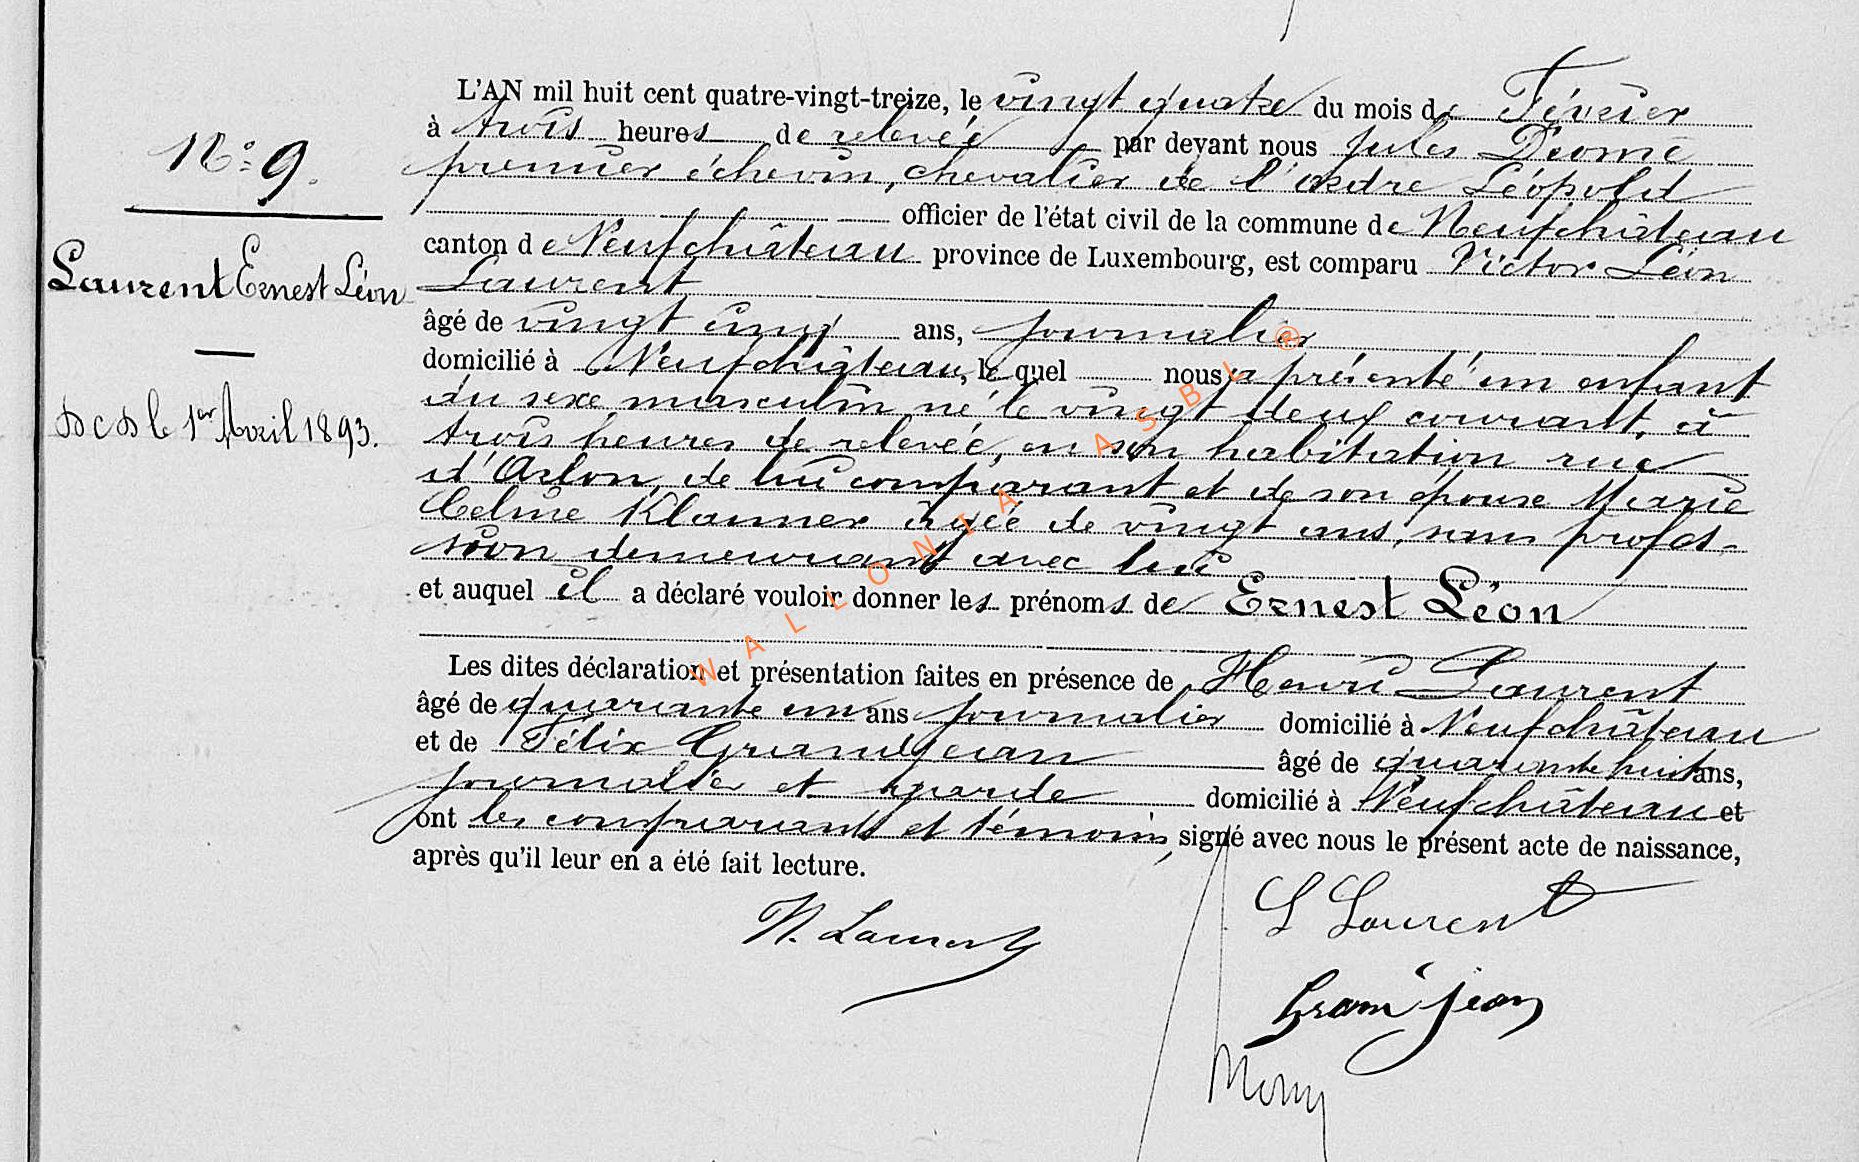 N° 9.
Laurent Ernest Léon
Dcd le 1er Avril 1893.
L'AN mil huit cent quatre-vingt-treize, le vingt quatre du mois de Février
à trois heures de relevée par devant nous Jules
premier échevin, chevalier de l'ordre Léopold
officier de l'état civil de la commune de Neufchâteau
canton de Neufchâteau province de Luxembourg, est comparu Victor Léon
Laurent
âgé de vingt cinq ans, journalier
domicilié à Neufchâteau, lequel nous a présenté un enfant
du sexe masculin né le vingt deux courant, à
trois heures de relevée, en son habitation rue
d'Arlon, de lui comparant et de son épouse Marie
Celine âgée de vingt ans, sans profes-
sion demeurant avec lui
et auquel il a déclaré vouloir donner les prénoms de Ernest Léon
Les dites déclaration et présentation faites en présence de Henri Laurent
âgé de quarante un ans journalier domicilié à Neufchâteau
et de Félix Grandjean âgé de quarante huit ans,
journalier et garde domicilié à Neufchâteau et
ont les comparants et témoins, signé avec nous le présent acte de naissance,
après qu'il leur en a été fait lecture.
H. Laurent
L Laurent
Grandjean
WALLONIA ASBL ®